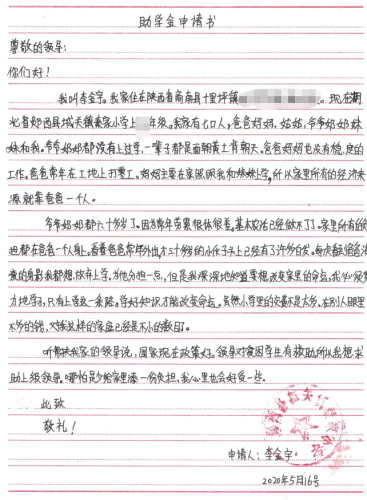 助学金申请书
尊敬的领导:
你们好!
我叫李金宇。我家住在陕西省商南县十里坪镇 现在湖
北省郧西县城关镇 小学上 年级。我家有七口人,爸爸妈妈,姑姑,爷爷奶奶妹
妹和我。爷爷奶奶都没有上过学,一辈子都是面朝黄土背朝天。爸爸妈妈也没有稳定的
工作。爸爸常年在工地上打零工。妈妈主要在家照顾我和妹妹上学,所以家里所有的经济来
源就靠爸爸一个人。
爷爷奶奶都六十多岁了。因为常年劳累很体很差。基本农活已经做不了了。家里所有的
担都在爸爸一个人身上。看着爸爸常年外出才三十多岁的小伙子头上已经有了许多白发。每次
我都想放弃上学。为他分担一点,但是我深深地知道要想改变家里的命运。我必须努
力地学习,只有上学这一条路。学好知识才能改变命运。虽然小学里的 不是太多。在别人眼里
不多的钱,对我这样的家庭已经是不小的数目。
听 我家的领导说,国家现在政策好。领导对贫困学生有救助所以我想求
助上级领导。哪怕是少给家里添一份负担,我心里也会好受一些。
此致
敬礼!
申请人:李金宇
2020年5月16号